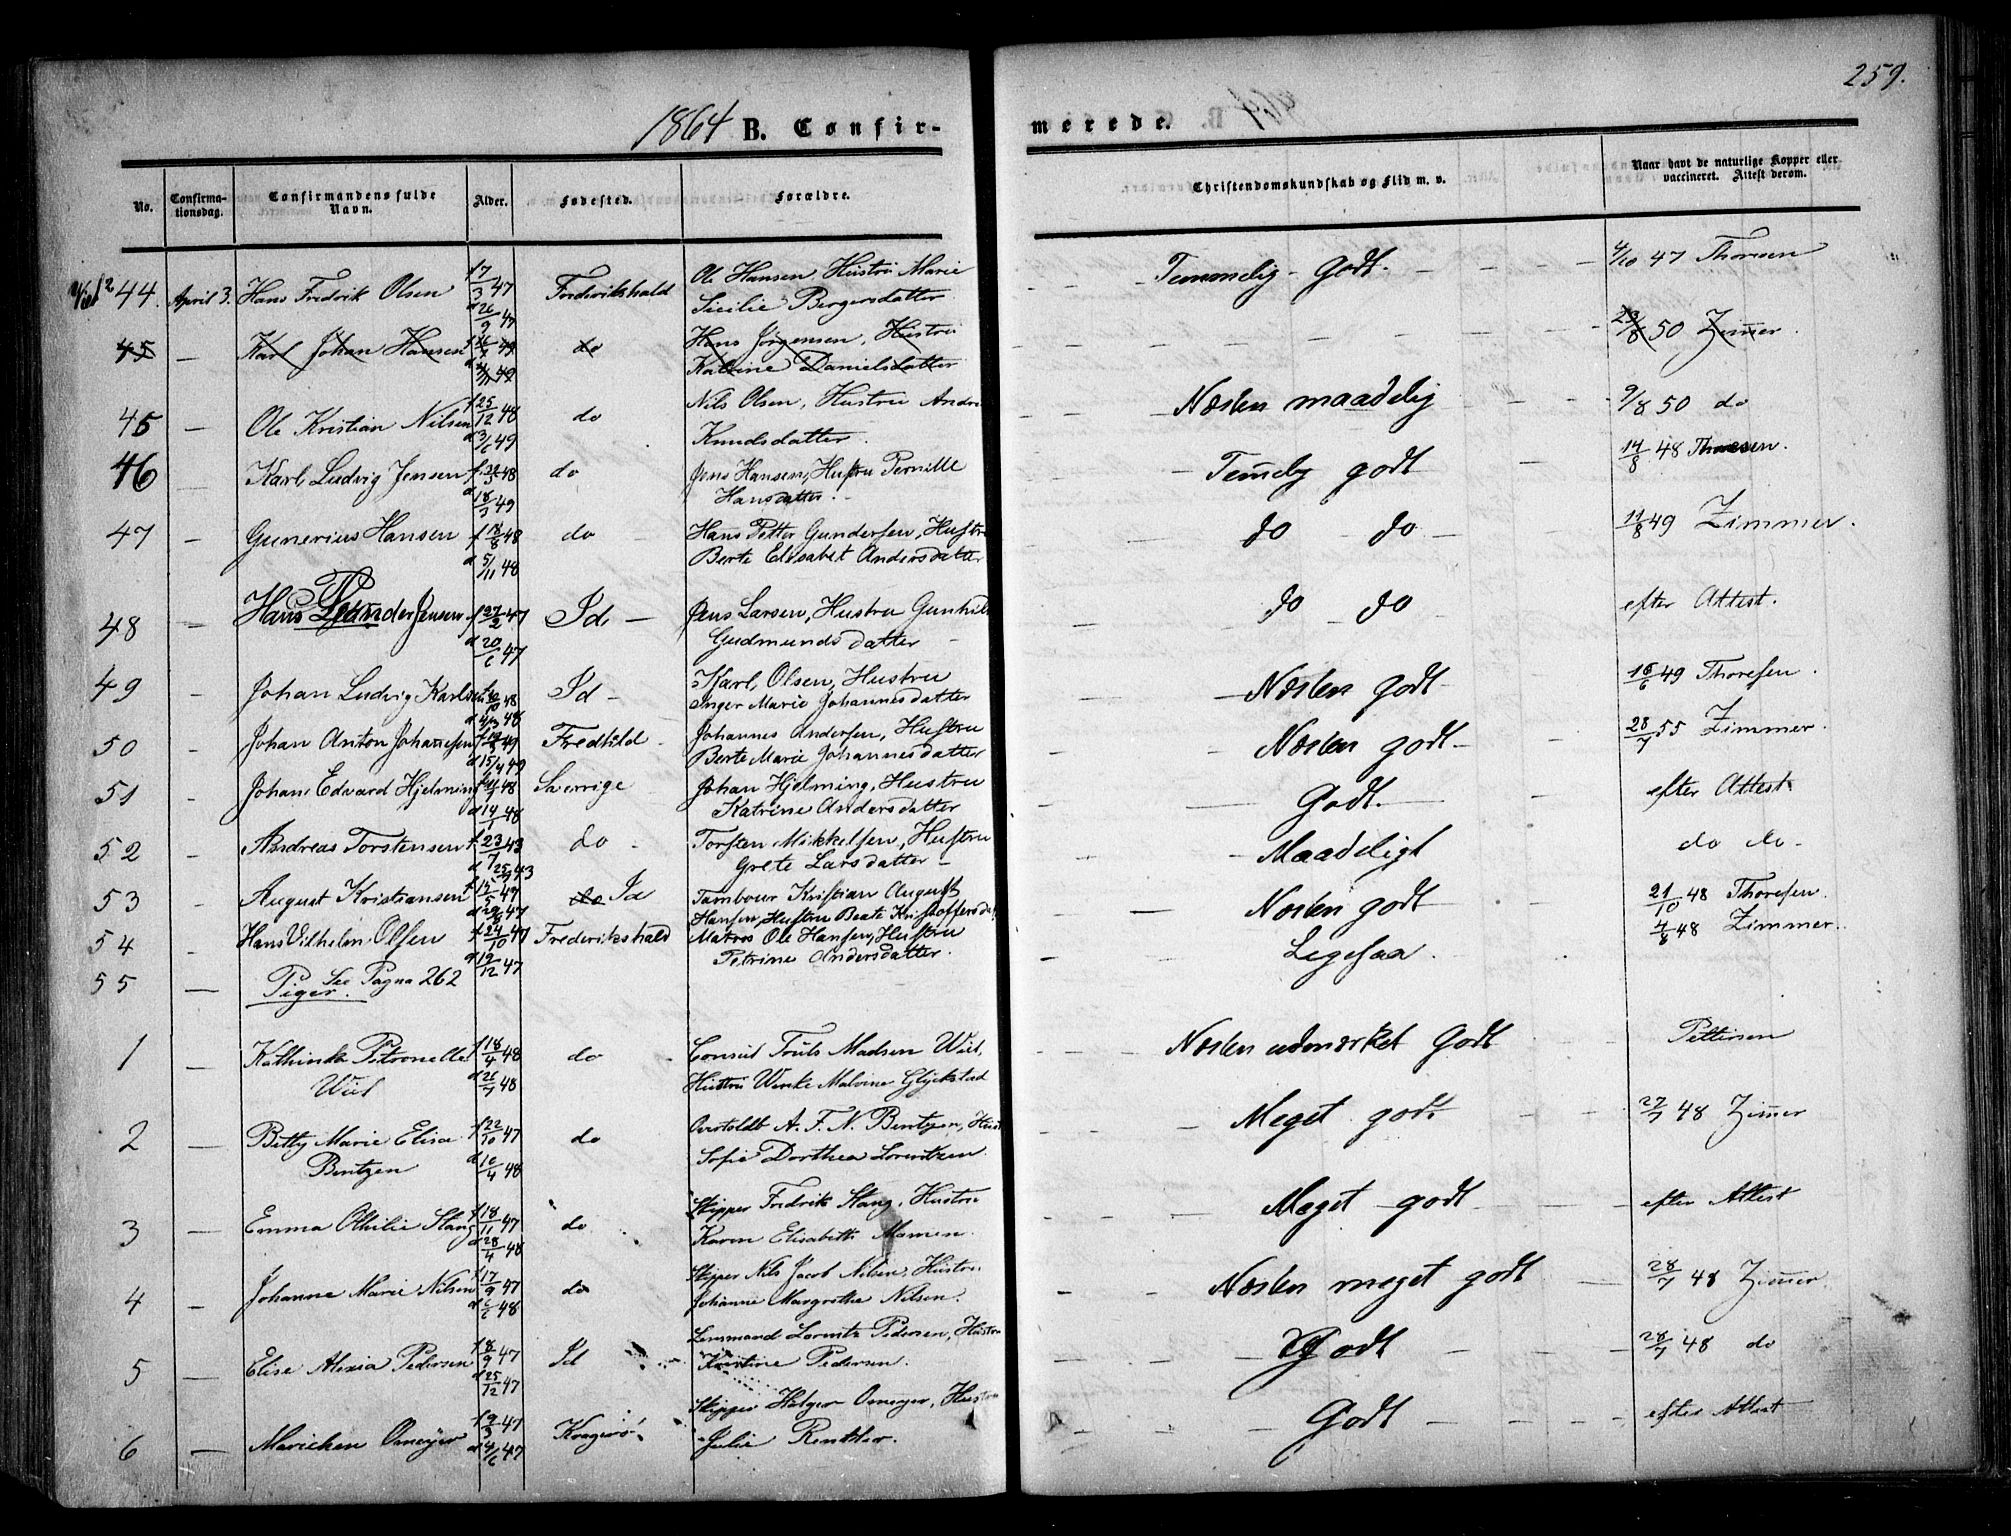 259.
1864 B. Confir-
merede.
No.
Confirma-
tionsdag.
Confirmandens fulde
Navn.
Alder.
Fødested.
Forældre.
Christendomskundskab og Flid m. v.
Naar havt de naturlige Kopper eller
vaccineret. Attest derom.
44. April 3. Hans Fredrik Olsen f 17/3 47 Frederikshald Ole Hansen, Hustru Marie Temmelig Godt. 4/10 47 Thoresen
d 26/9 47 Sicilie Bergersdatter
45 — Karl Johan Hansen do Hans Jørgensen, Hustru 23/8 50 Zimer.
Katrine Danielsdatter
45 — Ole Kristian Nilsen f 25/12 48 do Nils Olsen, Hustru Andrê Næsten maadelig 9/8 50 do
d 3/6 49 Knudsdatter.
46 — Karl Ludvig Jensen do Jens Hansen, Hustru Pernille Temelig godt 14/8 48 Thoresen.
d 18/3 49 Hansdatter.
47 — Gunerius Hansen f 18/8 48 do Hans Petter Gundersen, Hustru do do 11/8 49 Zimmer.
d 5/11 48 Berte Elisabet Andersdatter
48 — Hans Jensen f 27/2 47 Id — Jens Larsen, Hustru Gunhild do do efter Attest.
d 20/6 47 Gudmundsdatter
49 — Johan Ludvig Karlsen Id — Karl Olsen, Hustru Næsten Godt 16/6 49 Thoresen.
Inger Marie Johannesdatter
50 — Johan Anton Johanesen Fredhald Johannes Andersen, Hustru Næsten godt 28/7 55 Zimmer.
d 15/4 49 Berte Marie Johannesdatter
51 — Johan Edvard Hjelming Sverrige Johan Hjelming, Hustru Godt. efter Attest
d 14/1 48 Katrine Andersdatter
52 — Andreas Torstensen f 23/7 43 do Torsten Mikkelsen, Hustru Maadeligt do do
d 25/7 43 Grete Larsdatter
53 — August Kristiansen f 15/5 47 do Id Tambour Kristian August Næsten godt 21/10 48 Thoresen.
d 29/8 47 Hansen, Hustru Beate Kristoffersdat.
54 — Hans Vilhelm Olsen f 24/10 47 Frederikshald Matros Ole Hansen, Hustru Ligesaa. 7/8 48 Zimmer.
d 19/12 47 Petrine Andersdatter.
55 — See Pagna 262
Piger.
1 — Kathinka Petronelle f 18/4 48 do Consul Truls Madsen Wiel, Næsten udmærket Godt Pettersen
Wiel d 26/7 48 Hustru Wenke Malvine Glückstad
2 — Betty Marie Elisa f 22/10 47 do A. F. N. Bentzen, Hust Meget godt 27/7 48 Zimer
Bentzen d 16/4 48 Sofie Dorthea Lorentzen
3 — Emma Othilie Stang f 18/11 47 do Skipper Fredrik Stang, Hustru Meget godt efter Attest
d 28/4 48 Karen Elisabeth Mamen.
4 — Johanne Marie Nilsen f 17/9 47 do Skipper Nils Jacob Nilsen, Hustru Næsten meget godt 28/7 48 Zimer.
Johanne Margrethe Nilsen.
5 — Elise Alexia Pedersen f 8/9 47 Id Lensmand Lorentz Pedersen, Hustru Godt 28/7 48 do
d 25/12 47 Kristine Pedersen.
6 — Marichen Omeyer f 9/3 47 Kragerø Skipper Holger Omeyer, Hustru Godt efter Attest
d 4/6 47 Julie Rentler.